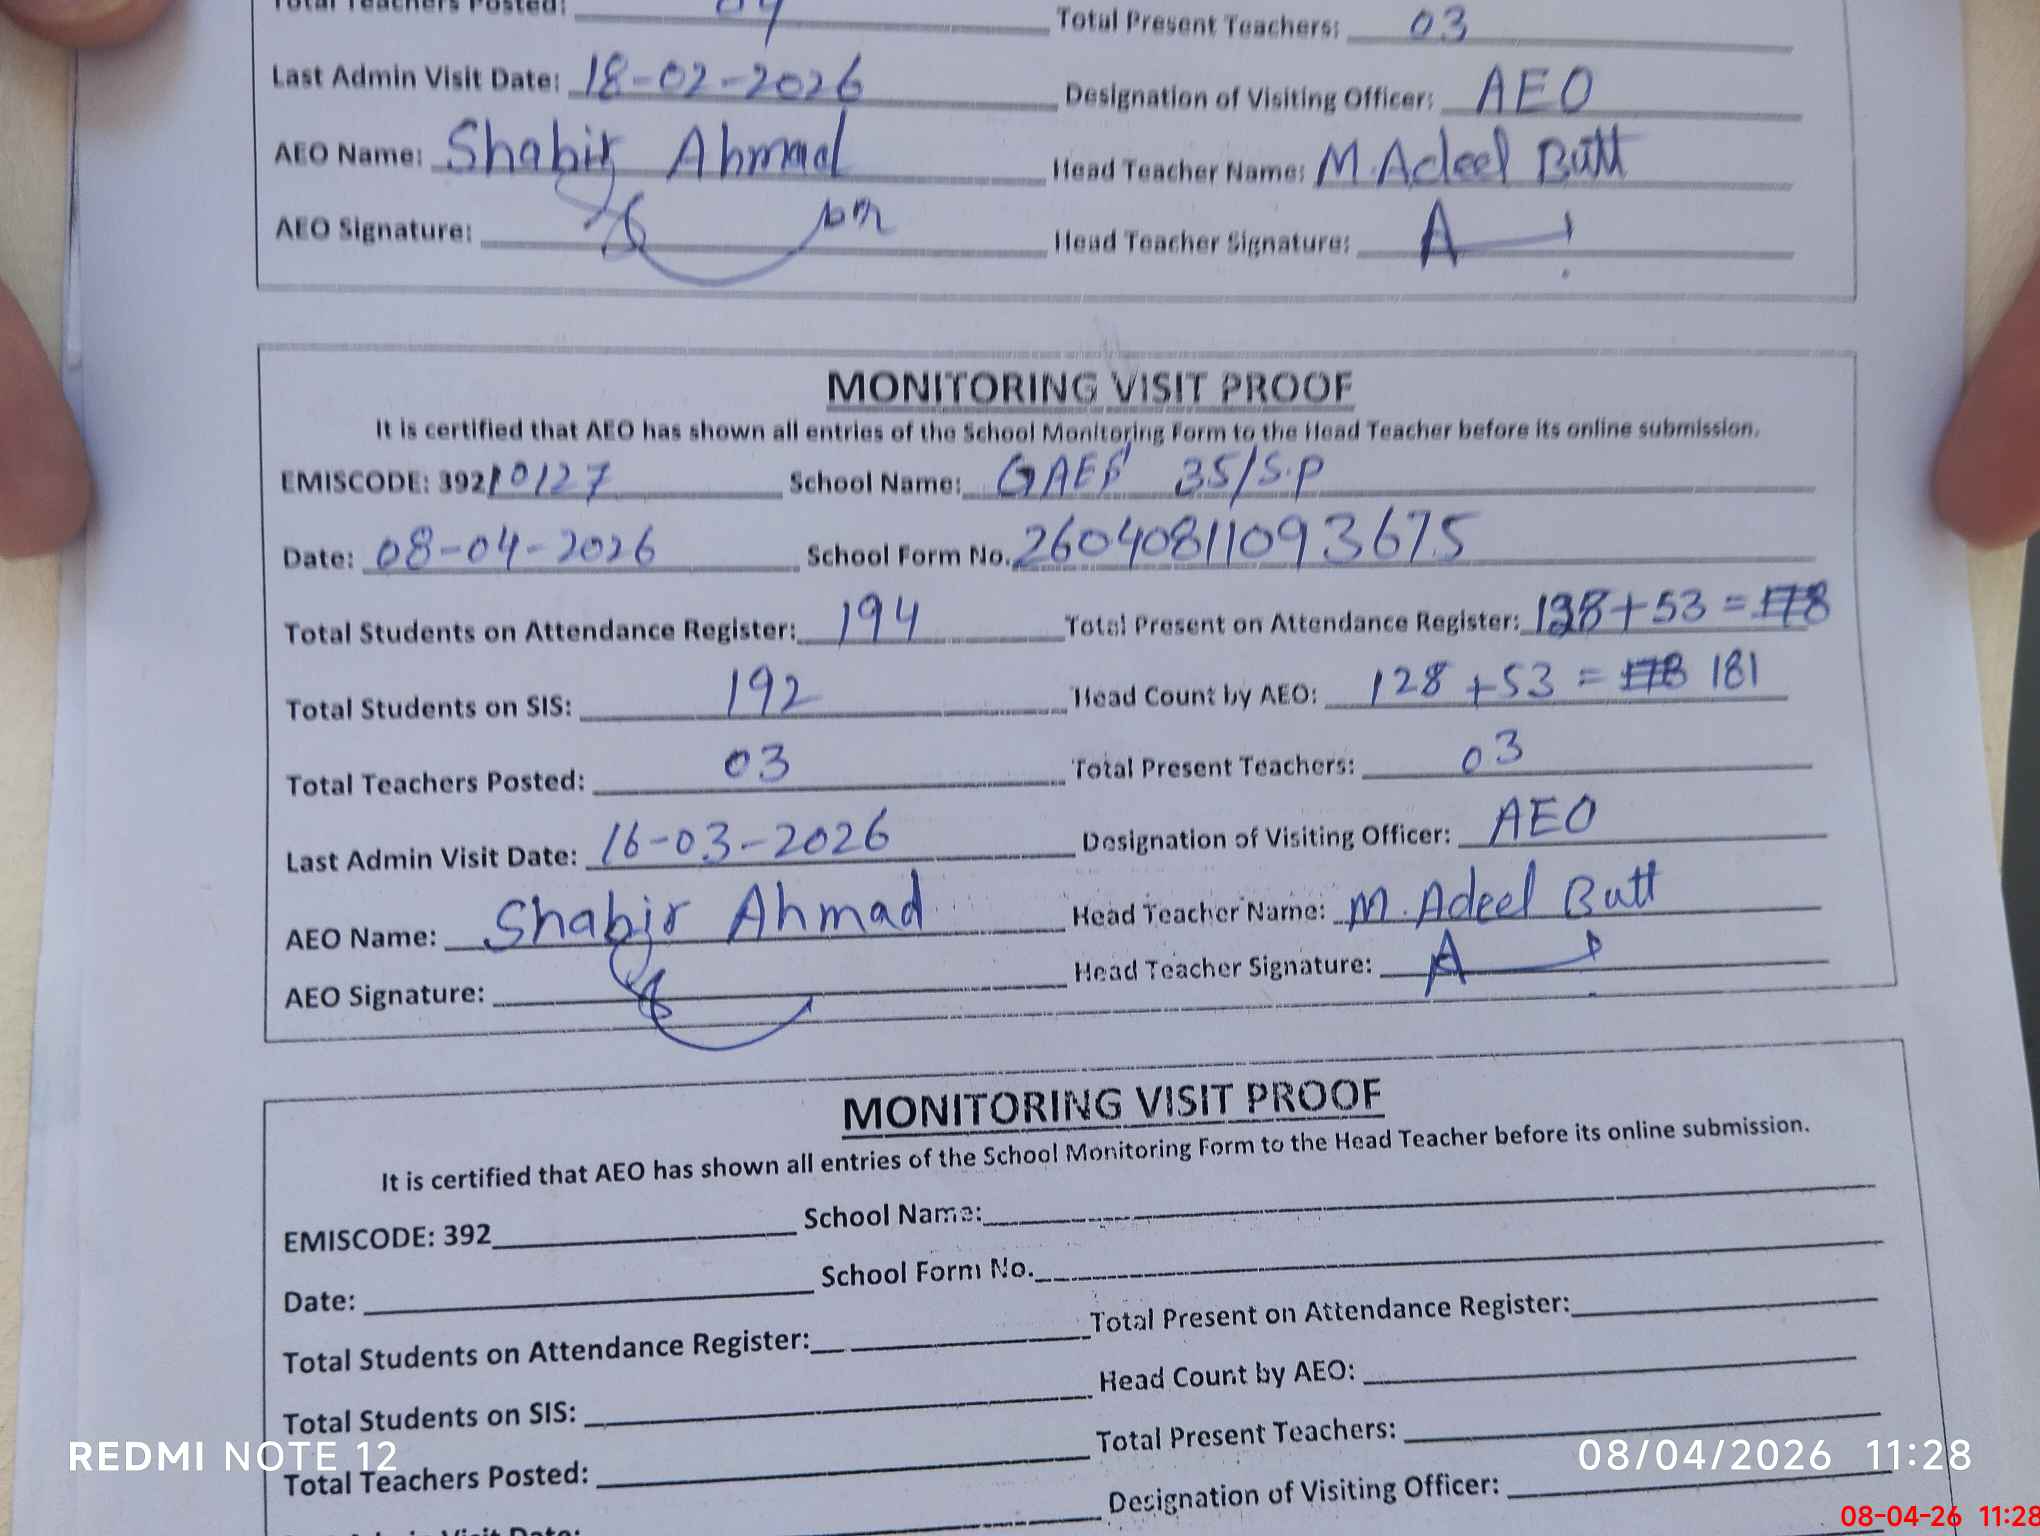 Total Teachers Posted: 04 Total Present Teachers: 03
Last Admin Visit Date: 18-02-2026 Designation of Visiting Officer: AEO
AEO Name: Shabir Ahmad Head Teacher Name: M. Adeel Butt
AEO Signature: Head Teacher Signature:
MONITORING VISIT PROOF
It is certified that AEO has shown all entries of the School Monitoring Form to the Head Teacher before its online submission.
EMISCODE: 39210127 School Name: GAES 35/S.P
Date: 08-04-2026 School Form No. 26040811093675
Total Students on Attendance Register: 194 Total Present on Attendance Register: 128+53 = 178
Total Students on SIS: 192 Head Count by AEO: 128 +53 = 178 181
Total Teachers Posted: 03 Total Present Teachers: 03
Last Admin Visit Date: 16-03-2026 Designation of Visiting Officer: AEO
AEO Name: Shabir Ahmad Head Teacher Name: M. Adeel Butt
AEO Signature: Head Teacher Signature:
MONITORING VISIT PROOF
It is certified that AEO has shown all entries of the School Monitoring Form to the Head Teacher before its online submission.
EMISCODE: 392 School Name:
Date: School Form No.
Total Students on Attendance Register: Total Present on Attendance Register:
Total Students on SIS: Head Count by AEO:
Total Teachers Posted: Total Present Teachers:
Designation of Visiting Officer:
REDMI NOTE 12 08/04/2026 11:28
08-04-26 11:28